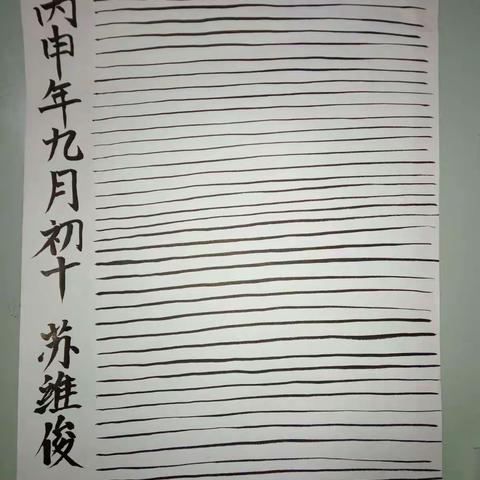 丙申年九月初十 苏维俊